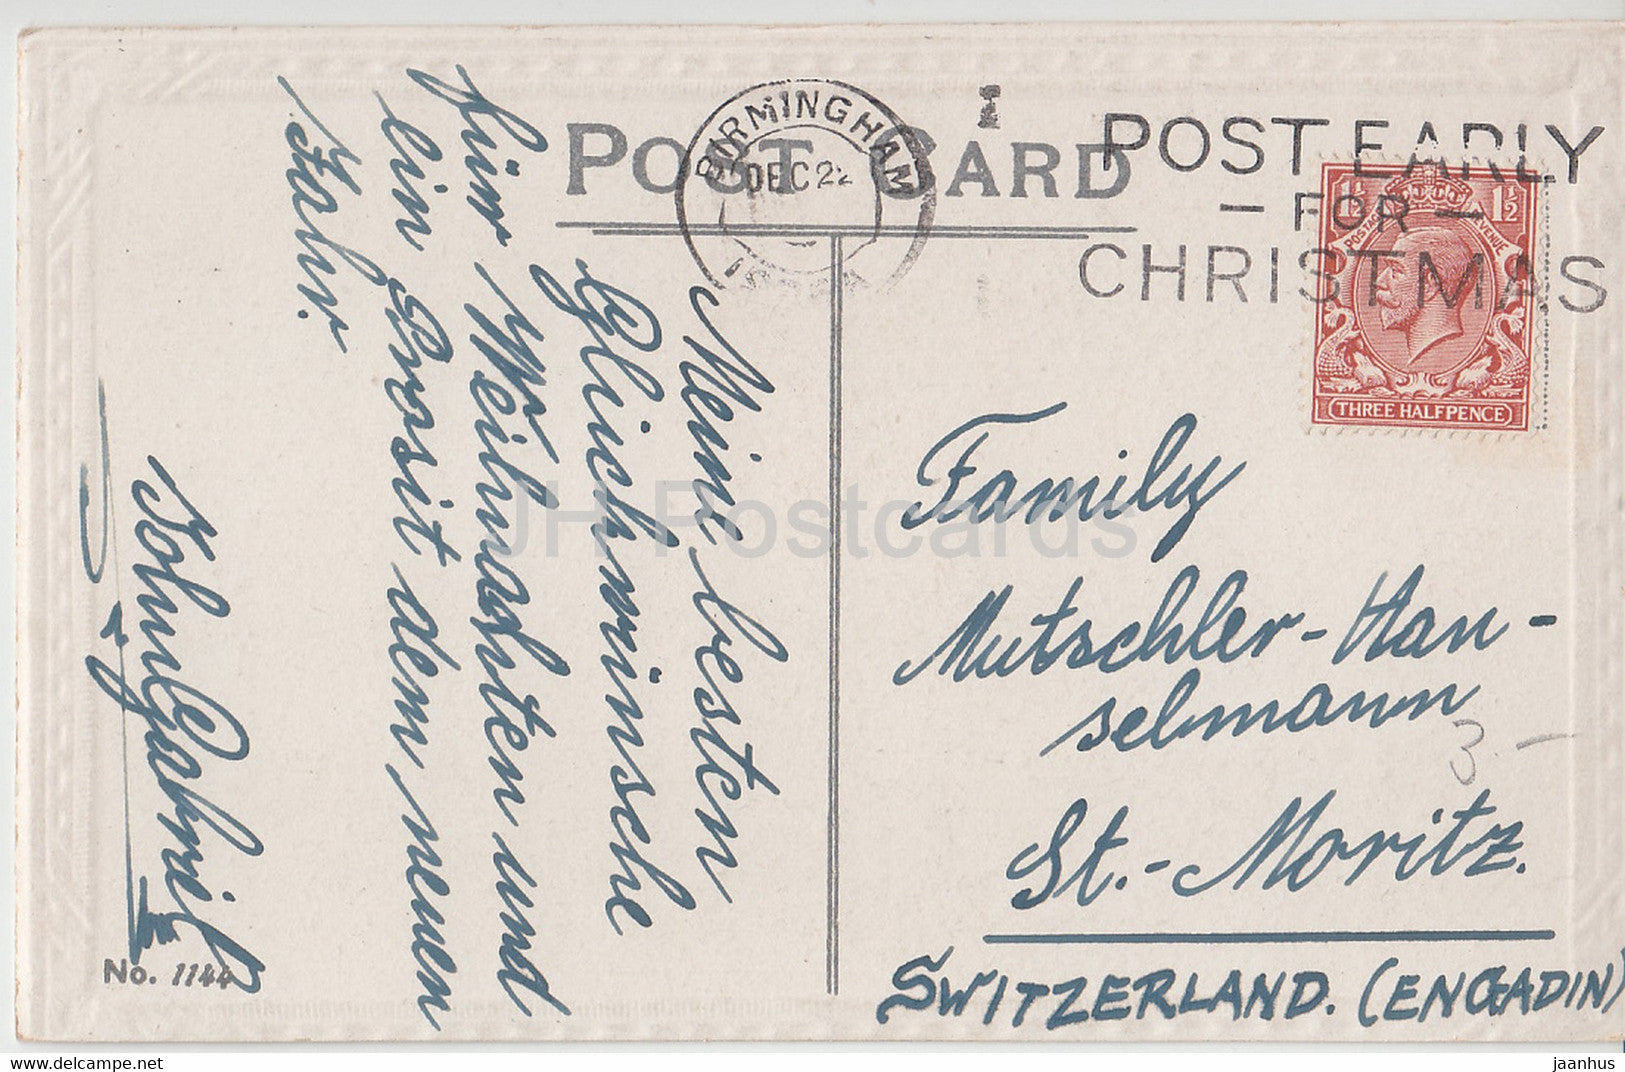 POST CARD
BIRMINGHAM
DEC 22
POST EARLY
- FOR -
CHRISTMAS
1½ 1½
POSTAGE REVENUE
THREE HALFPENCE
Meine besten
Glückwünsche
für Weihnachten und
ein Prosit dem neuen
Jahr.
Family
Mutschler-Han-
selmann
St.-Moritz.
SWITZERLAND. (ENGADIN)
3.-
No. 1144
JH Postcards
delcampe.net
jaanhus